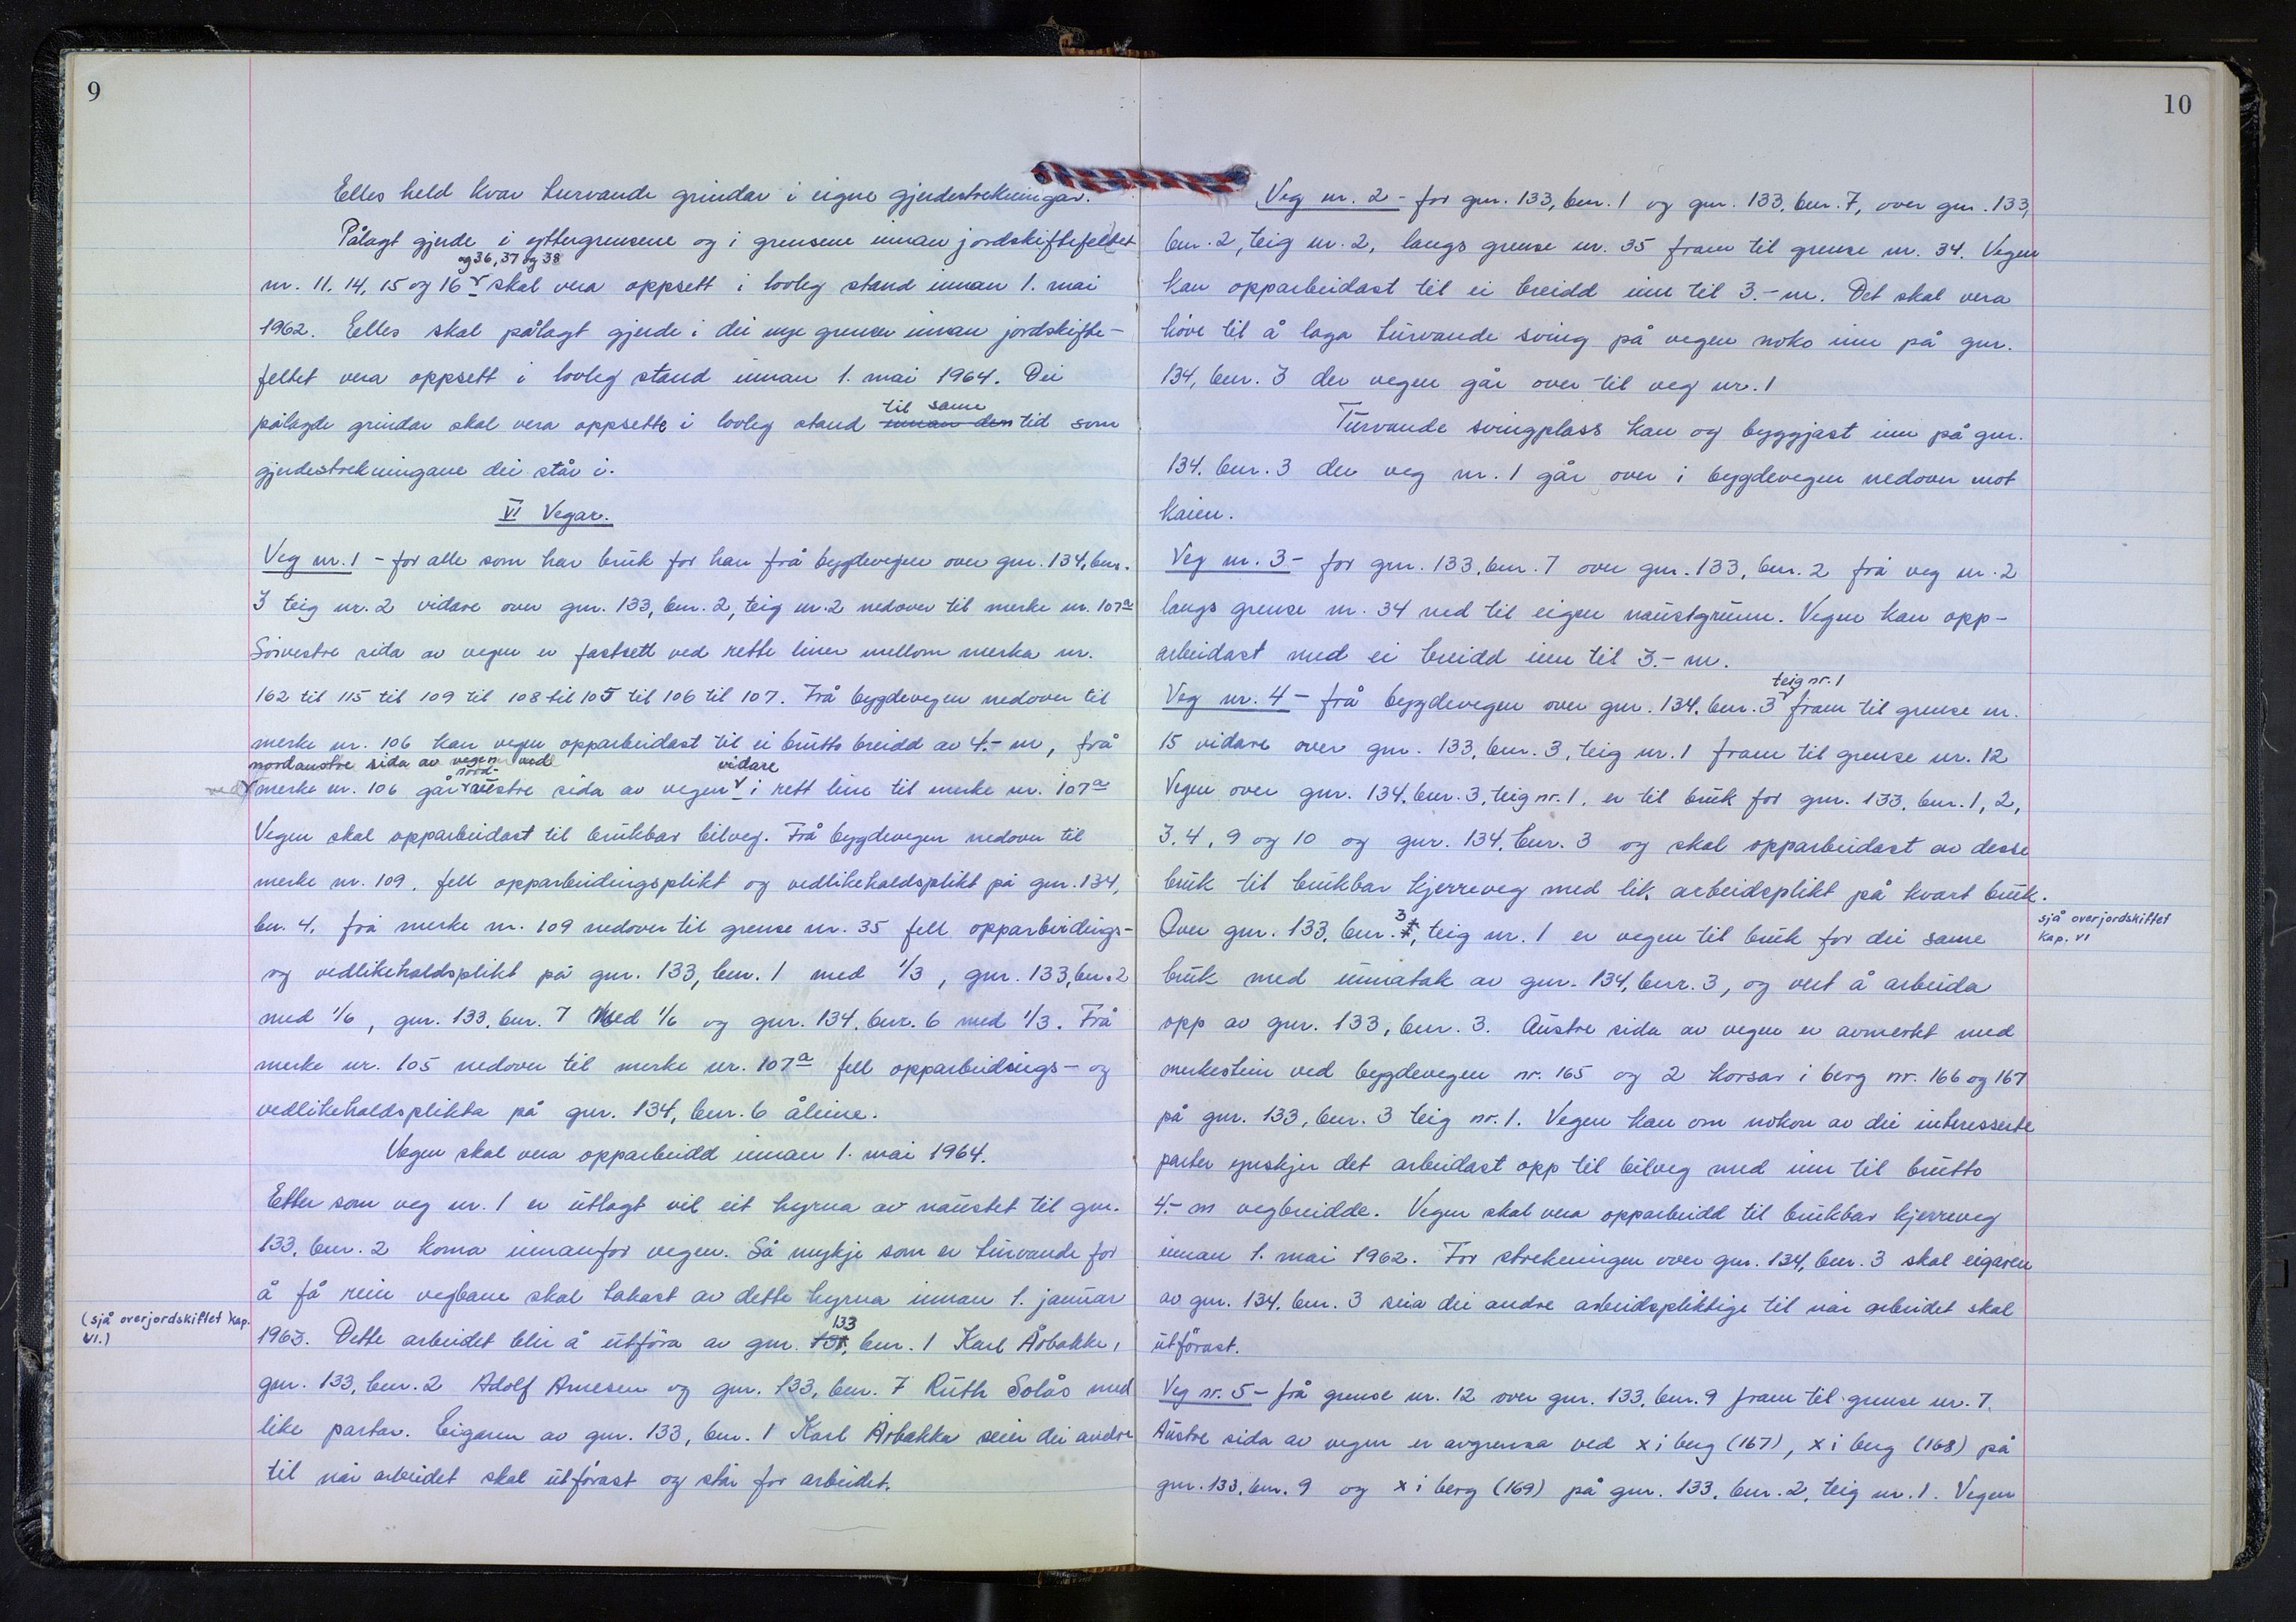 9
Elles held kvar turvande grindar i eigne gjerdestrekningar.
Pålagt gjerde i yttergrensene og i grensene innan jordskiftefeltet
og 36, 37 og 38
nr. 11, 14, 15 og 16 skal vera oppsett i lovleg stand innan 1. mai
1962. Elles skal pålagt gjerde i dei nye grenser innan jordskifte-
feltet vera oppsett i lovleg stand innan 1. mai 1964. Dei
til same
pålagde grindar skal vera oppsette i lovleg stand innan den tid som
gjerdestrekningane dei står i.
VI Vegar.
Veg nr. 1 - for alle som har bruk for han frå bygdevegen over gnr. 134, bnr.
3 teig nr. 2 vidare over gnr. 133, bnr. 2, teig nr. 2 nedover til merke nr. 107a
Sørvestre sida av vegen er fastsett ved rette liner mellom merka nr.
162 til 115 til 109 til 108 til 105 til 106 til 107. Frå bygdevegen nedover til
merke nr. 106 kan vegen opparbeidast til ei brutto breidd av 4.- m, frå
nordaustre sida av vegen ved
nord- vidare
ved merke nr. 106 går austre sida av vegen i rett line til merke nr. 107a
Vegen skal opparbeidast til brukbar bilveg. Frå bygdevegen nedover til
merke nr. 109, fell opparbeidingsplikt og vedlikehaldsplikt på gnr. 134,
bnr. 4, frå merke nr. 109 nedover til grense nr. 35 fell opparbeidings-
og vedlikehaldsplikt på gnr. 133, bnr. 1 med 1/3, gnr. 133, bnr. 2
med 1/6, gnr. 133, bnr. 7 med 1/6 og gnr. 134, bnr. 6 med 1/3. Frå
merke nr. 105 nedover til merke nr. 107a fell opparbeidings- og
vedlikehaldsplikta på gnr. 134, bnr. 6 åleine.
Vegen skal vera opparbeidd innan 1. mai 1964.
Etter som veg nr. 1 er utlagt vil eit hyrna av naustet til gnr.
133, bnr. 2 koma innanfor vegen. Så mykje som er turvande for
å få rein vegbane skal takast av dette hyrna innan 1. januar
(sjå overjordskiftet kap.
VI.)
133
1963. Dette arbeidet blir å utføra av gnr. bnr. 1 Karl Årbakke,
gnr. 133, bnr. 2 Adolf Arnesen og gnr. 133, bnr. 7 Ruth Solås med
like partar. Eigaren av gnr. 133, bnr. 1 Karl Årbakka seier dei andre
til når arbeidet skal utførast og står for arbeidet.
10
Veg nr. 2 - for gnr. 133, bnr. 1 og gnr. 133, bnr. 7, over gnr. 133,
bnr. 2, teig nr. 2, langs grense nr. 35 fram til grense nr. 34. Vegen
kan opparbeidast til ei breidd inn til 3.- m. Det skal vera
høve til å laga turvande sving på vegen noko inn på gnr.
134, bnr. 3 der vegen går over til veg nr. 1
Turvande svingplass kan og byggjast inn på gnr.
134, bnr. 3 der veg nr. 1 går over i bygdevegen nedover mot
kaien.
Veg nr. 3 - for gnr. 133, bnr. 7 over gnr. 133, bnr. 2 frå veg nr. 2
langs grense nr. 34 ned til eigen naustgrunn. Vegen kan opp-
arbeidast med ei breidd inn til 3.- m.
teig nr. 1
Veg nr. 4 - frå bygdevegen over gnr. 134, bnr. 3 fram til grense nr.
15 vidare over gnr. 133, bnr. 3, teig nr. 1 fram til grense nr. 12
Vegen over gnr. 134, bnr. 3, teig nr. 1, er til bruk for gnr. 133, bnr. 1, 2,
3, 4, 9 og 10 og gnr. 134, bnr. 3 og skal opparbeidast av desse
bruk til brukbar kjerreveg med lik arbeidsplikt på kvart bruk.
sjå overjordskiftet
kap. VI
3
Over gnr. 133, bnr. teig nr. 1 er vegen til bruk for dei same
bruk med unnatak av gnr. 134, bnr. 3, og vert å arbeida
opp av gnr. 133, bnr. 3. Austre sida av vegen er avmerkt med
merkestein ved bygdevegen nr. 165 og 2 korsar i berg nr. 166 og 167
på gnr. 133, bnr. 3 teig nr. 1. Vegen kan om nokon av dei interesserte
parter ynskjer det arbeidast opp til bilveg med inn til brutto
4.- m vegbreidde. Vegen skal vera opparbeidd til brukbar kjerreveg
innan 1. mai 1962. For strekningen over gnr. 134, bnr. 3 skal eigaren
av gnr. 134, bnr. 3 seia dei andre arbeidspliktige til når arbeidet skal
utførast.
Veg nr. 5 - frå grense nr. 12 over gnr. 133, bnr. 9 fram til grense nr. 7.
Austre sida av vegen er avgrensa ved x i berg (167), x i berg (168) på
gnr. 133, bnr. 9 og x i berg (169) på gnr. 133, bnr. 2, teig nr. 1. Vegen